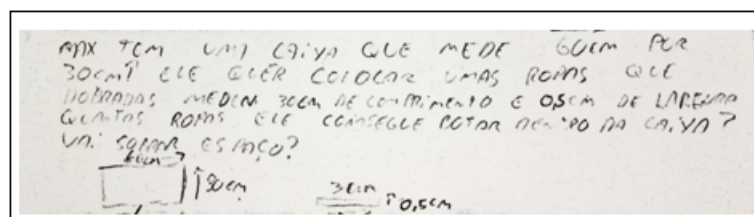 MAX TEM UMA CAIXA QUE MEDE 60CM POR
30CM ELE QUER COLOCAR UMAS ROPAS QUE
DOBRADAS MEDEM 30CM DE COMPRIMENTO E 0,5CM DE LARGURA
QUANTAS ROPAS ELE CONSEGUE BOTAR DENTRO DA CAIXA?
VAI SOBRAR ESPAÇO?
60CM
30CM
30CM
0,5CM